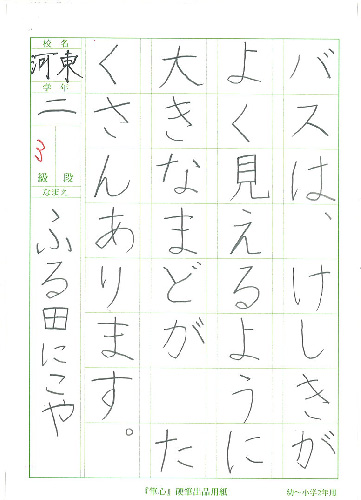 バスは、けしきが
よく見えるように
大きなまどが　た
くさんあります。
校名
河東
学年
二
3
級段
なまえ
ふる田にこや
『筆心』硬筆出品用紙
幼〜小学2年用